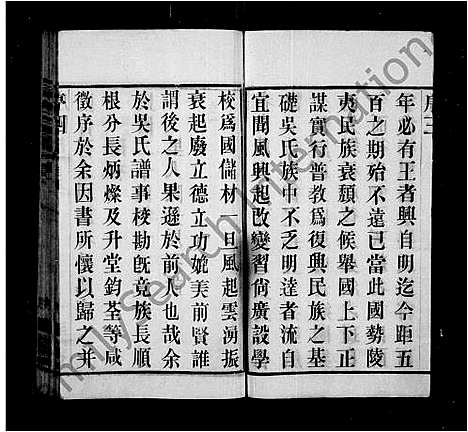 序三
年必有王者興自明迄今距五
百之期殆不遠已當此國勢陵
夷民族衰頹之候舉國上下正
謀實行普教爲復興民族之基
礎吳氏族中不乏明達者流自
宜聞風興起改變習尙廣設學
校爲國儲材一旦風起雲湧振
衰起廢立德立功媲美前賢誰
謂後之人果遜於前人也哉余
於吳氏譜事校勘旣竟族長順
根分長炳燦及升堂鈞荃等咸
徵序於余因書所懷以歸之并
序四